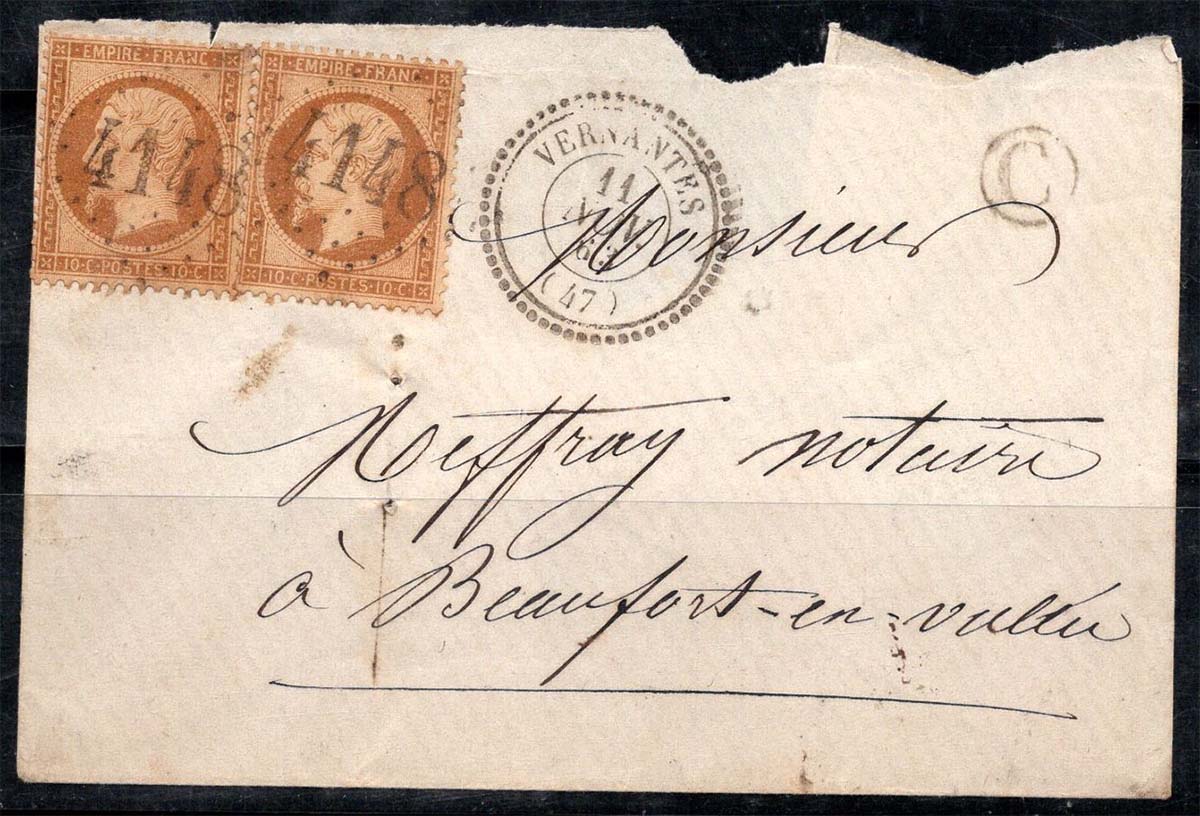 EMPIRE FRANC
4148
10·C·POSTES·10·C
EMPIRE FRANC
4148
10·C·POSTES·10·C
VERNANTES
11
NOV.
(47)
C
Monsieur
Neffray notaire
à Beaufort-en-vallée